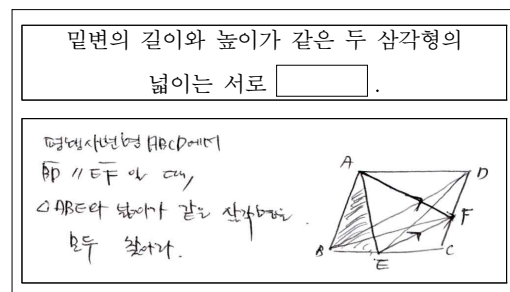 밑변의 길이와 높이가 같은 두 삼각형의
넓이는 서로 .
평행사변형 ABCD에서
BD // EF 일 때,
△ABE와 넓이가 같은 삼각형을
모두 찾아라.
A
D
F
B
E
C